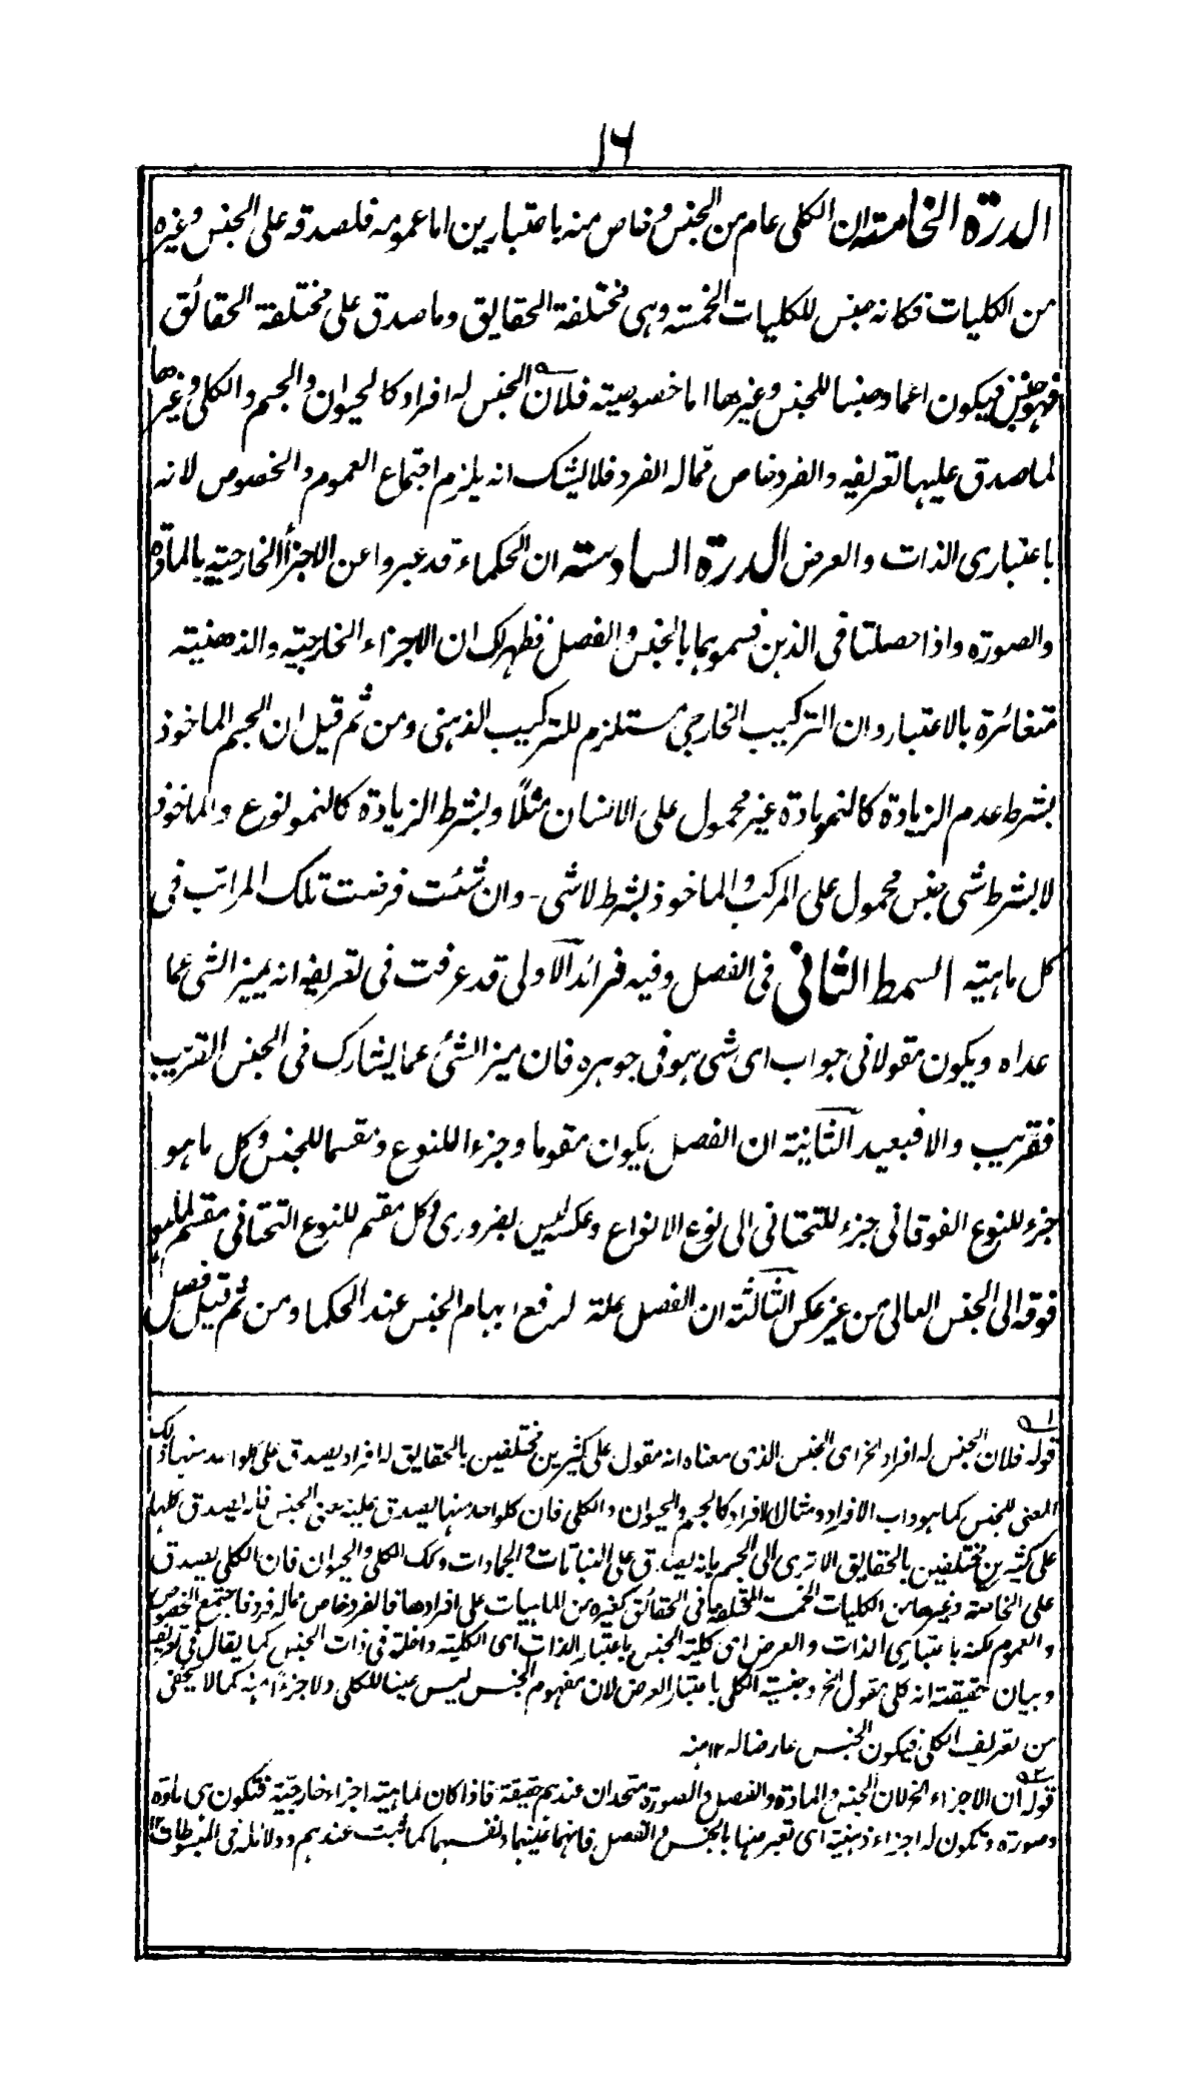 ١٦
الدرة الخامسة ان الكلى عام من الجنس وخاص منه باعتبارين اما عمومه فلصدقه على الجنس وغيره
من الكليات فكانه جنس للكليات الخمسة وهى مختلفة الحقايق وما صدق على مختلفة الحقائق
فهو جنس فيكون اعما وجنسا للجنس وغيرها اما خصوصيته فلان الجنس له افراد كالحيوان والجسم والكلى وغيرها
لما صدق عليها تعريفه والفرد خاص مما له الفرد فلا يشك انه يلزم اجتماع العموم والخصوص لانه
باعتبارى الذات والعرض الدرة السادسة ان الحكماء قد عبروا عن الاجزأ الخارجية بالمادة
والصورة واذا حصلتا فى الذهن فسموهما بالجنس والفصل فظهر لك ان الاجزاء الخارجية والذهنية
متغائرة بالاعتبار وان التركيب الخارجى مستلزم للتركيب الذهنى ومن ثم قيل ان الجسم الماخوذ
بشرط عدم الزيادة كالنمو مادة غير محمول على الانسان مثلًا وبشرط الزيادة كالنمو نوع والماخوذ
لا بشرط شى جنس محمول على المركب والماخوذ بشرط لا شى - وان شئت فرضت تلك المراتب فى
كل ماهية السمط الثانى فى الفصل وفيه فرائد الاولى قد عرفت فى تعريفه انه يميز الشى عما
عداه ويكون مقولا فى جواب اى شى هو فى جوهره فان ميز الشئ عما يشارك فى الجنس القريب
فقريب والا فبعيد الثانية ان الفصل يكون مقوما وجزءا للنوع ومقسما للجنس وكل ما هو
جزء للنوع الفوقانى جزء للتحتانى الى نوع الانواع وعكسه ليس بضرورى وكل مقسم للنوع التحتانى مقسم لما هو
فوقه الى الجنس العالى من غير عكس الثالثة ان الفصل علة لرفع ابهام الجنس عند الحكما ومن ثم قيل فصل
قوله فلان الجنس له افراد الخ اى الجنس الذى معناه انه مقول على كثيرين مختلفين بالحقايق له افراد يصدق على كلواحد منها ذلك
المعنى للجنس كما هو داب الافراد ومثال الافراد كالجسم والحيوان والكلى فان كلواحد منها يصدق عليه معنى الجنس فانه يصدق عليها
على كثيرين مختلفين بالحقايق الا ترى الى الجسم بانه يصدق على النباتات والجمادات وكذلك الكلى والحيوان فان الكلى يصدق
على الخاصة وغيرها من الكليات الخمسة المختلفة فى الحقائق كغيره من الماهيات على افرادها فالفرد خاص مما له فرد فاجتمع الخصوص
والعموم لكنه باعتبارى الذات والعرض اى كلية الجنس باعتبار الذات اى الكلية داخلة فى ذات الجنس كما يقال فى تعريفه
وبيان حقيقته انه كلى مقول الخ وجنسية الكلى باعتبار العرض لان مفهوم الجنس ليس عينا للكلى ولا جزءً منه كما لا يخفى
من تعريف الكلى فيكون الجنس عارضا له ١٢ منه
قوله ان الاجزاء الخ لان الجنس والمادة والفصل والصورة متحدان عندهم حقيقة فاذا كان لماهية اجزاء خارجية فتكون هى مادة
وصورة وتكون له اجزاء ذهنية اى تعبر منها بالجنس والفصل فانهما عينهما ونفسهما كما ثبت عندهم ودلائله فى المبسوطات